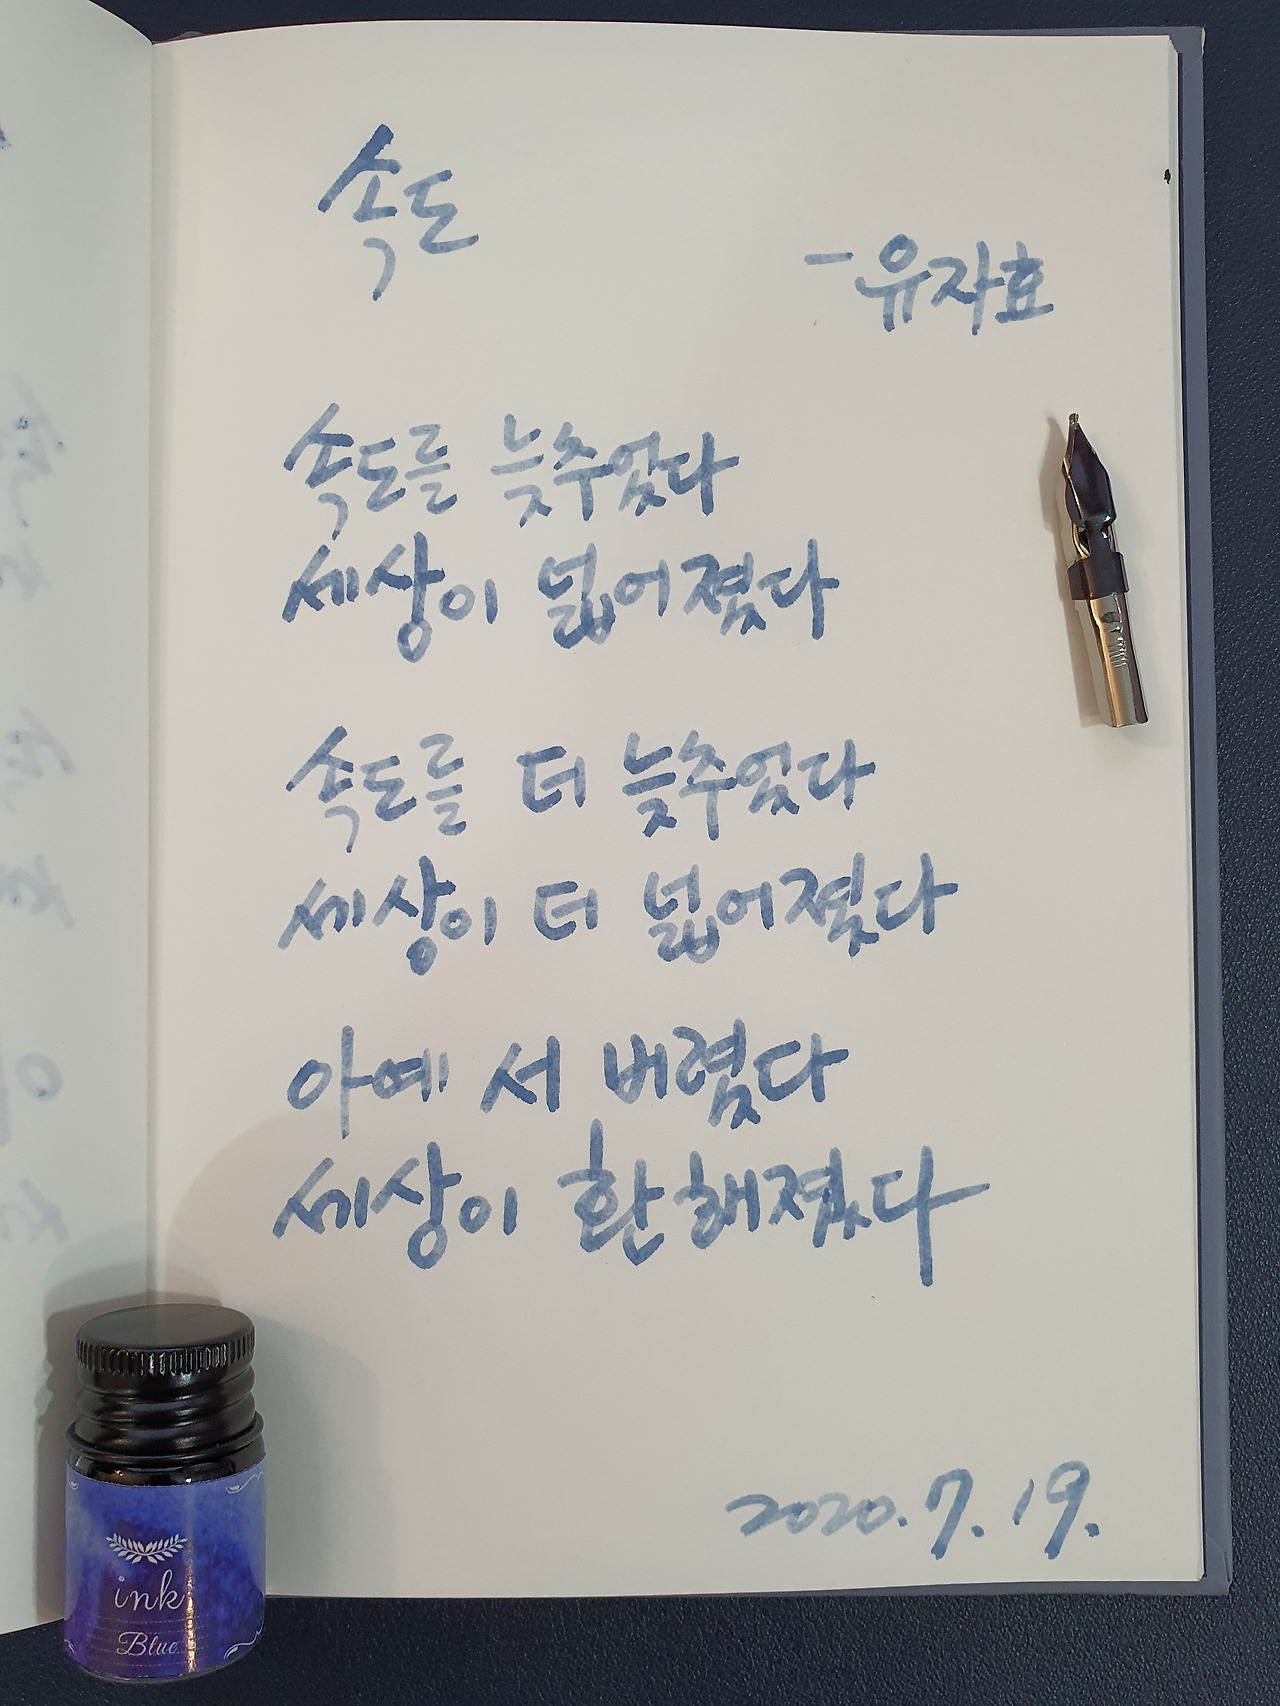 속도
- 유자효
속도를 늦추었다
세상이 넓어졌다
속도를 더 늦추었다
세상이 더 넓어졌다
아예 서 버렸다
세상이 환해졌다
2020. 7. 19.
ink
Blue